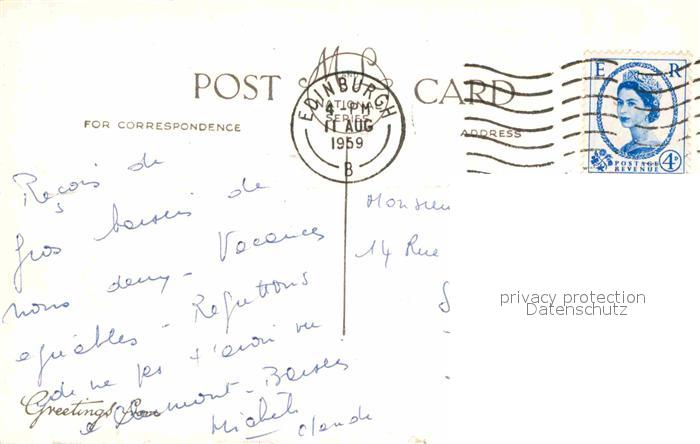 POST CARD
NATIONAL
SERIES
FOR CORRESPONDENCE
ADDRESS
EDINBURGH
4. PM
11 AUG
1959
B
E R
POSTAGE
REVENUE
4D
Reçois de
gros baisers de
nous deux - Vacances
agréables - Regrettons
de ne pas t'avoir vu
à
Baisers
Michel
Claude
Greetings from
Monsieur
14 Rue
privacy protection
Datenschutz